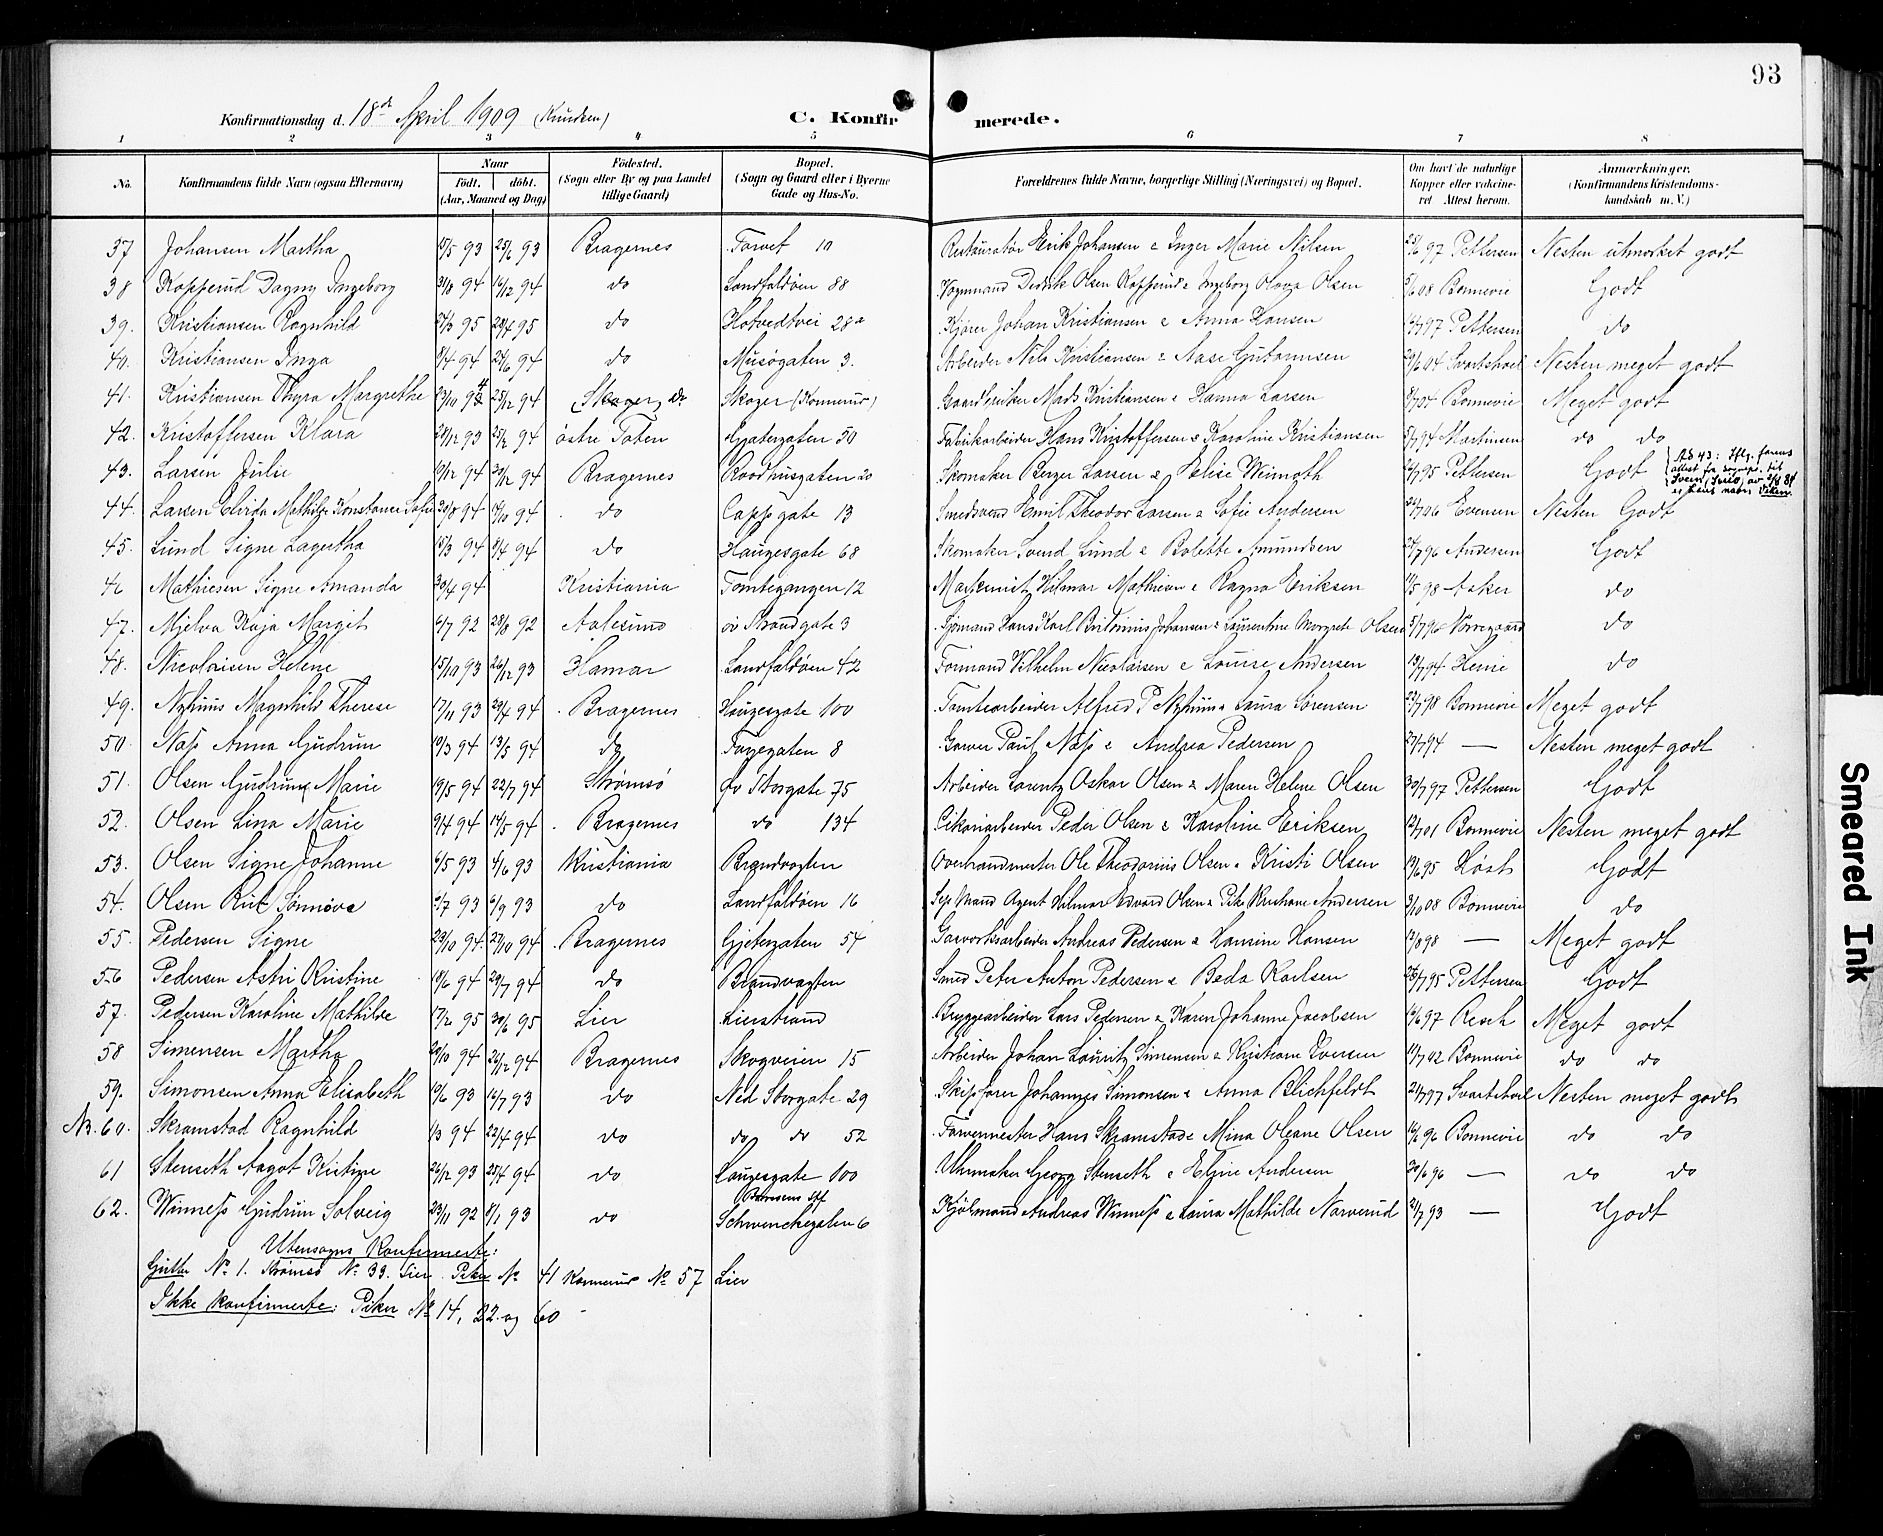 93
Konfirmationsdag d. 18de April 1909 (Knudsen) C. Konfirmerede.
1 2 3 4 5 6 7 8
No. Konfirmandens fulde Navn (ogsaa Efternavn) Naar født. døbt. (Aar, Maaned og Dag) Födested. (Sogn eller By og paa Landet tillige Gaard) Bopæl. (Sogn og Gaard eller i Byerne Gade og Hus-No. Forældrenes fulde Navne, borgerlige Stilling (Næringsvei) og Bopæl. Om havt de naturlige Kopper eller vakcineret Attest herom. Anmærkninger. (Konfirmandens Kristendomskundskab m. V.)
37 Johansen Martha 93 25/6 93 Bragernes Torvet 10 Restauratør Erik Johansen & Inger Marie Nilsen 97 Pettersen Nesten utmerket godt
38 Kopperud Dagny Ingeborg 94 16/12 94 do Landfaldøen 88 Vognmand Didrik Olsen Kopperud & Ingeborg Olava Olsen 08 Bonnevie Godt
39. Kristiansen Ragnhild 95 28/4 95 do Hotvedtvei 28a Kjører Johan Kristiansen & Anna Hansen 97 Pettersen do
40. Kristiansen Inga 8/4 94 24/6 94 do Musøgaten 3. Arbeider Nils Kristiansen & Aase Guttormsen 04 Svartshoel Nesten meget godt
41. Kristiansen Thyra Margrethe 94 25/12 94 Skoger do Skoger (Konnerud) Gaardbruker Mads Kristiansen & Hanna Larsen Bonnevie Meget godt
42. Kristoffersen Klara 28/12 93 25/2 94 østre Toten Gjetergaten 50 Fabrikarbeider Hans Kristoffersen & Karoline Kristiansen 5/7 94 Martinsen do do
43. Larsen Julie 94 30/12 94 Bragernes Raadhusgaten 20 Skomaker Berger Larsen & Elise Weinoth 95 Pettersen Godt
No 43: Iflg. farens attest fra sognep. til er hans navn
44. Larsen Elvida Mathilde Konstance Sofie 94 94 do Cappsgate 13 Smedsvend Emil Theodor Larsen & Sofie Andersen 06 Evensen Nesten Godt
45. Lund Signe Lagertha 15/3 94 8/4 94 do Haugesgate 68 Skomaker Svend Lund & Bolette Amundsen 96 Andersen Godt
46 Mathiesen Signe Amanda 30/4 94 Kristiania Tomtegangen 12 Hilmar Mathiesen & Ragna Eriksen 98 Asker do
47. Mjelva Kaja Margit 6/7 92 28/8 92 Aalesund øv Strandgate 3 Sjømand Hans Karl Johansen & Laurentine Margrete Olsen 5/7 96 do
48. Nicolaisen Helene 15/10 93 26/12 93 Hamar Landfaldøen 42 Formand Vilhelm Nicolaisen & Louise Andersen 94 do
49. Nyhuus Magnhild Therese 17/11 93 29/4 94 Bragernes Haugesgate 100 Tomtearbeider Alfred P Nyhuus & Laura Sørensen 98 Bonnevie Meget godt
50. Næss Anna Gudrun 10/3 94 13/5 94 do Fægegaten 8 Garver Paul Næss & Andrea Pedersen 94 — Nesten meget godt
51. Olsen Gudrun Marie 19/5 94 22/7 94 Strømsø øv Storgate 75 Arbeider Lorentz Oskar Olsen & Maren Helene Olsen 97 Pettersen Godt
52. Olsen Lina Marie 9/4 94 14/5 94 Bragernes do 134 Peder Olsen & Karoline Eriksen 01 Bonnevie Nesten meget godt
53. Olsen Signe Johanne 93 4/6 93 Kristiania Brandvagten Overbrandmester Ole Theodorius Olsen & Kristi Olsen 95 Godt
54. Olsen Rut Sønnøve 93 93 do Landfaldøen 16 Agent Hilmar Edvard Olsen & Andersen 3/10 08 Bonnevie do
55. Pedersen Signe 94 27/10 94 Bragernes Gjetergaten 54 Gasverksarbeider Andreas Pedersen & Hansine Hansen 98 — Meget godt
56 Pedersen Astri Kristine 18/6 94 29/7 94 do Brandvagten Smed Peter Anton Pedersen & Beda Karlsen 95 Pettersen Godt
57. Pedersen Karoline Mathilde 17/2 95 30/6 95 Lier Lierstrand Bryggearbeider Lars Pedersen & Karen Johanne Jacobsen 97 Resch Meget godt
58 Simensen Martha 94 26/12 94 Bragernes Skogveien 15 Arbeider Johan Lauritz Simensen & Kristiane Iversen 02 Bonnevie do do
59. Simonsen Anna Elisabeth 19/6 93 16/7 93 do Ned Storgate 29 Skipsfører Johannes Simonsen & Anna Blichfeldt 97 Svartshoel Nesten meget godt
NB. 60. Skramstad Ragnhild 94 22/4 94 do do do 52 Farvermester Hans Skramstad & Mina Oleane Olsen 96 Bonnevie do do
61 Stenseth Aagot Kristine 26/12 93 25/4 94 do Haugesgate 100 Uhrmaker Georg Stenseth & Eline Andersen 96 — do do
62. Winness Gudrun Solveig 23/11 92 8/1 93 do Schwenckegaten 6 Kjølmand Andreas Winness & Laura Mathilde Narverud 93 — Godt
Utensogns Konfirmerte:
Gutter No 1. Strømsø No 33. Lier. Piker No 41 Konnerud No 57 Lier
Ikke konfirmerte: Piker No 14, 22 og 60
Smeared Ink